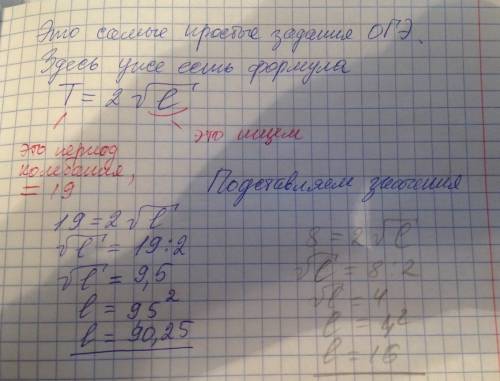 Это самые простые задания ОГЭ.
Здесь уже есть формула
T = 2 √l
это ищем
это период
колебания,
= 19
Подставляем значения
19 = 2 √l
√l = 19 : 2
√l = 9,5
l = 95²
l = 90,25
8 = 2 √l
√l = 8 : 2
√l = 4
l = 4²
l = 16